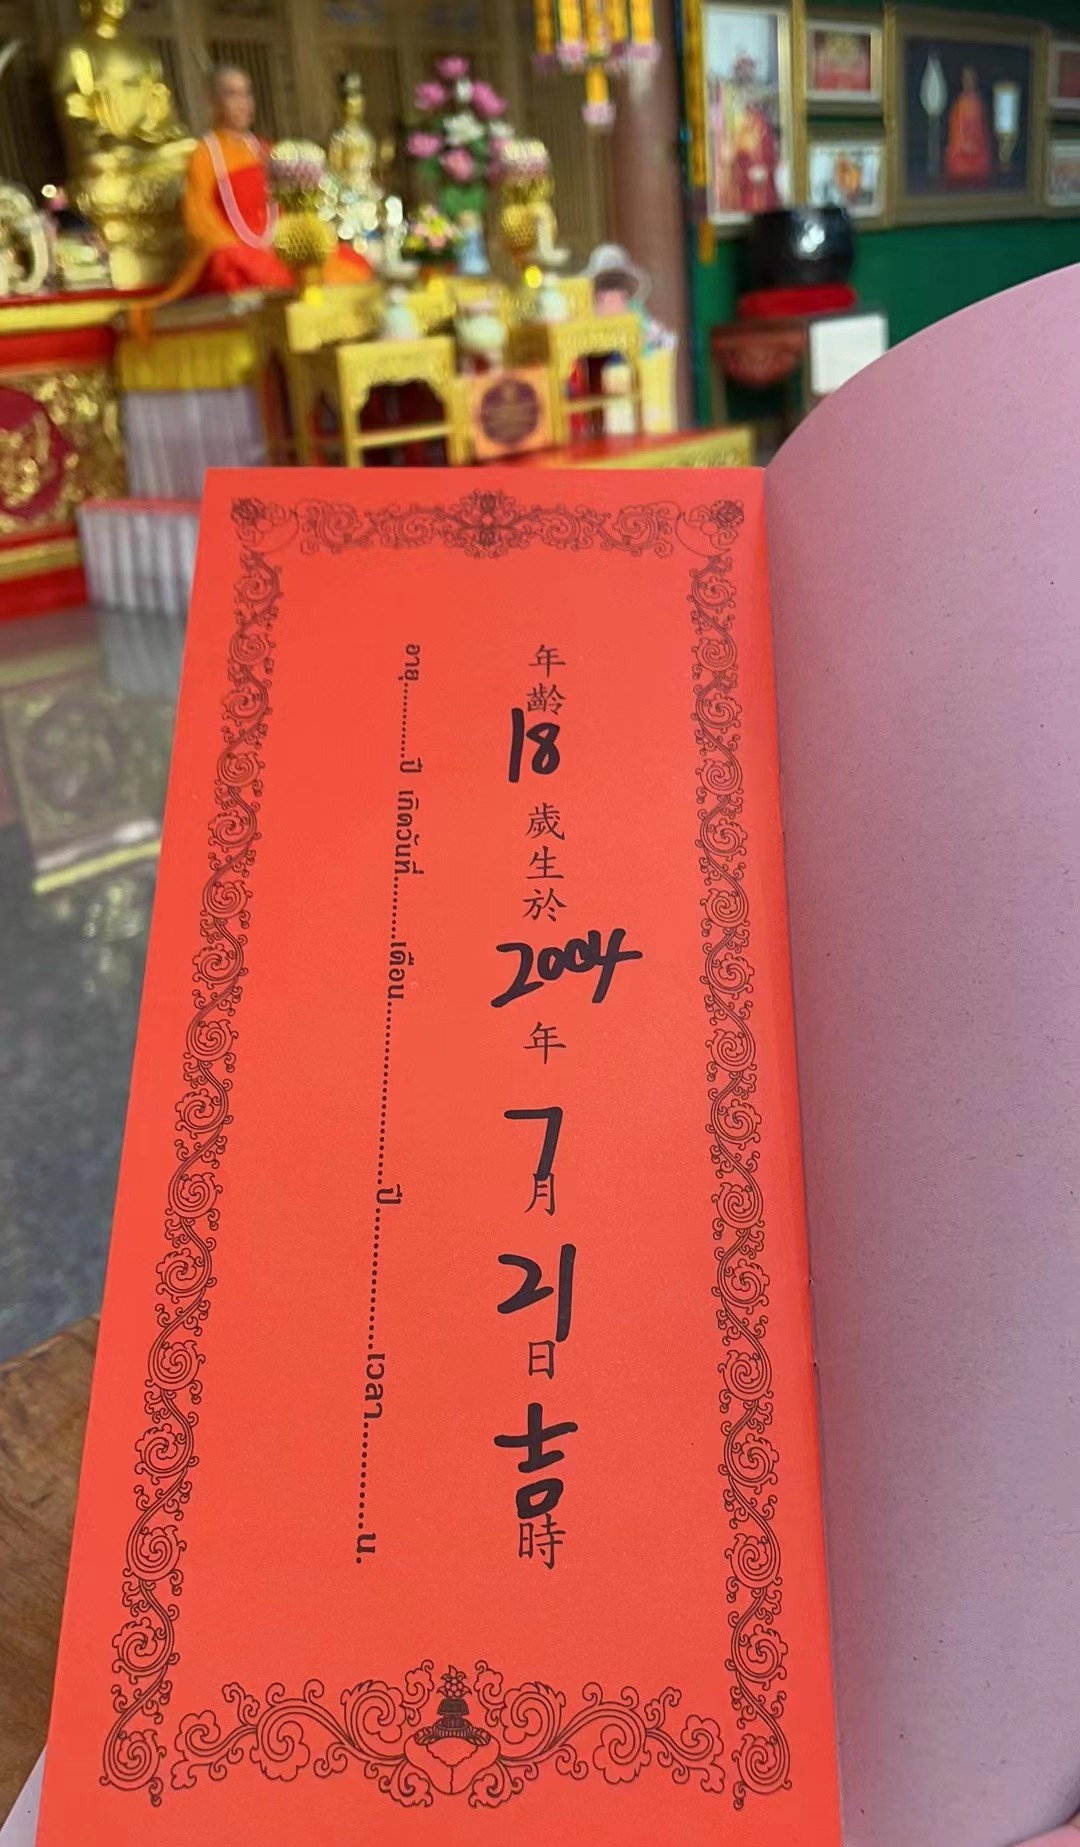 年齡18歲生於2004年7月21日吉時
อายุ..........ปี เกิดวันที่..........เดือน..............................ปี......................เวลา...............น.